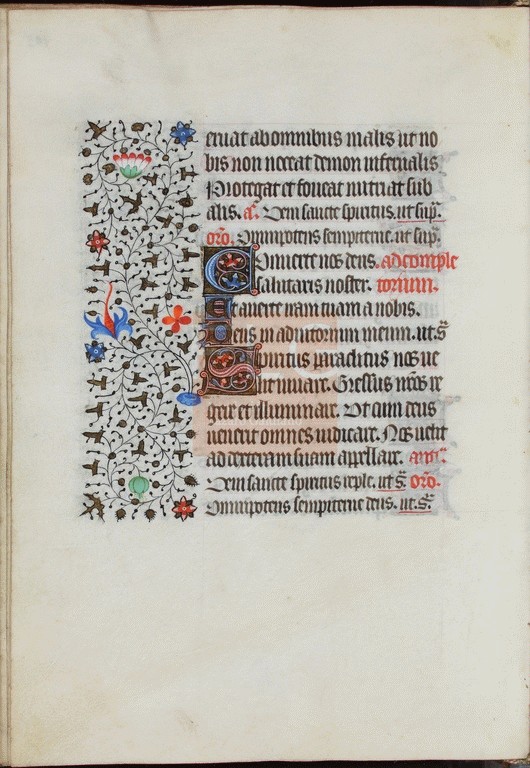 eruat ab omnibus malis ut no
bis non noceat demon infernalis
Protegat et foveat nutriat sub
alis. a. Veni sancte spiritus. ut sup.
oro. Omnipotens sempiterne. ut sup.
Converte nos deus. ad comple
Salutaris noster. torium.
Et averte iram tuam a nobis.
Deus in adiutorium meum. ut. s.
Spiritus paraclitus nos ve
lit iuvare. Gressus nros re
gere et illuminare. Ut cum deus
venerit omnes iudicare. Nos velit
ad dexteram suam apellare.
Veni sancte spiritus reple. ut s. oro.
Omnipotens sempiterne deus. ut. s.